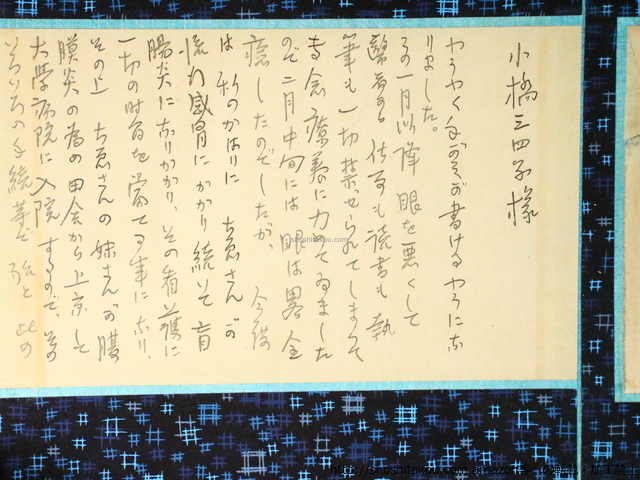 小橋三四子様
やうやく手がみが書けるやうにな
りました。
この一月以降 眼を悪くして
醫者から仕事も読書も執
筆も一切禁ぜられてしまつて
専念療養に力めてゐました
ので二月中旬には 眼は畧全
癒したのでしたが、今度
は 私のかはりに ちゑさんが
流行感冒にかかり続いて盲
腸炎になりかかり、その看護に
一切の時間を當てる事になり、
その上 ちゑさんの妹さんが腹
膜炎の為め田舎から上京して
大學病院に入院するので、その
いろいろの手続等で 殆と此の
shoshitakou.com
http://shoshitakou.com